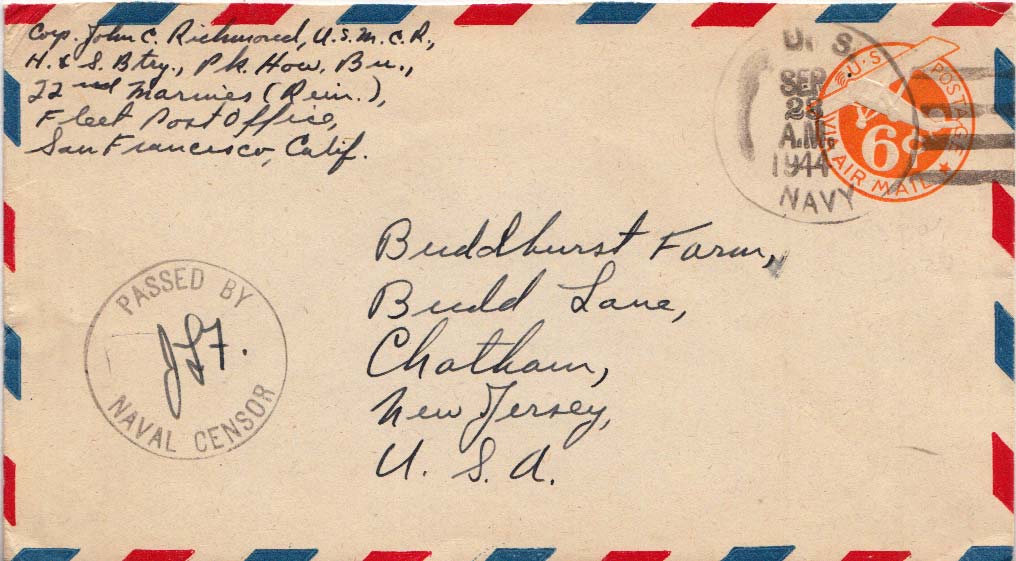 Corp. John C. Richmond, U.S.M.C.R.,
H. & S. Btry., Pk. How. Bn.,
22nd Marines (Rein.),
Fleet Post Office,
San Francisco, Calif.
U. S.
SEP
25
A.M.
1944
NAVY
U.S. POSTAGE
6c
VIA AIR MAIL
Buddhurst Farm,
Budd Lane,
Chatham,
New Jersey,
U. S. A.
PASSED BY
NAVAL CENSOR